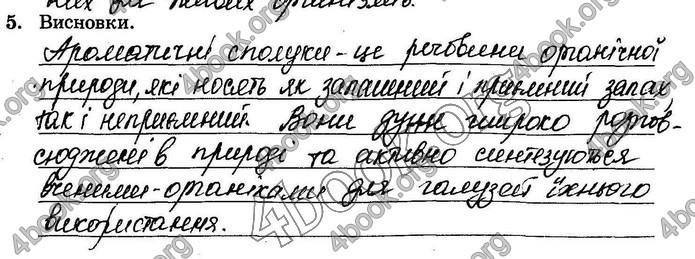 них для живих організмів.
5. Висновки.
Ароматичні сполуки - це речовини органічної
природи, які носять як запашний і приємний запах
так і неприємний. Вони дуже широко розпов-
сюджені в природі та активно синтезуються
вченими-органіками для галузей їхнього
використання.
4book.org